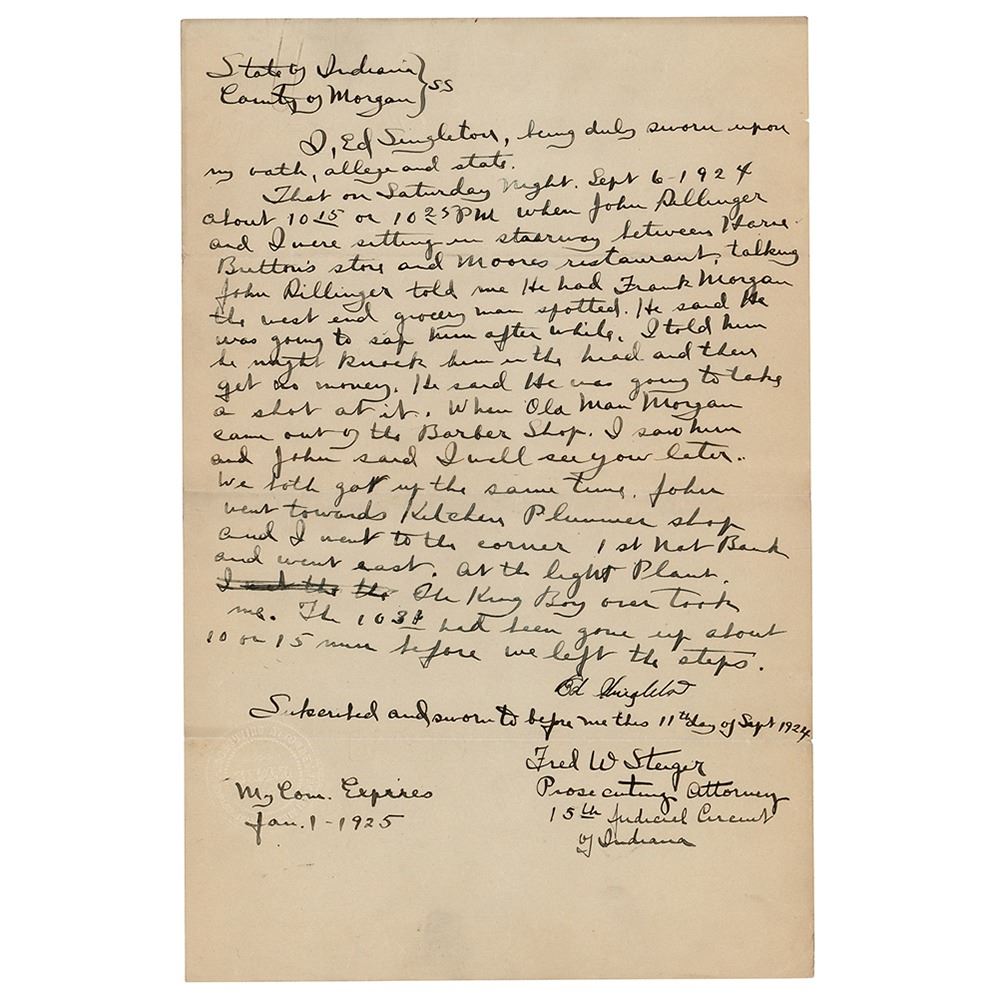 State of Indiana } SS
County of Morgan
I, Ed Singleton, being duly sworn upon
my oath, allege and state.
That on Saturday Night. Sept 6-1924
about 10 15 or 10 25 PM when John Dillinger
and I were sitting in stairway between Harve
Britton's store and Moores restaurant, talking
John Dillinger told me He had Frank Morgan
the west end grocery man spotted. He said He
was going to sap him after while. I told him
he might knock him in the head and then
get no money. He said He was going to take
a shot at it. When Old Man Morgan
came out of the Barber Shop. I saw him
and John said I will see you later.
We both got up the same time. John
went towards Kitchen Plummer shop
and I went to the corner 1st Nat Bank
and went east. At the light Plant.
the King Boy over took
me. The 10 31 had been gone up about
10 or 15 min before we left the steps.
Ed Singleton
Subscribed and sworn to before me this 11th day of Sept 1924
Fred W Steiger
Prosecuting Attorney
15th Judicial Circuit
of Indiana
My Com. Expires
Jan. 1-1925